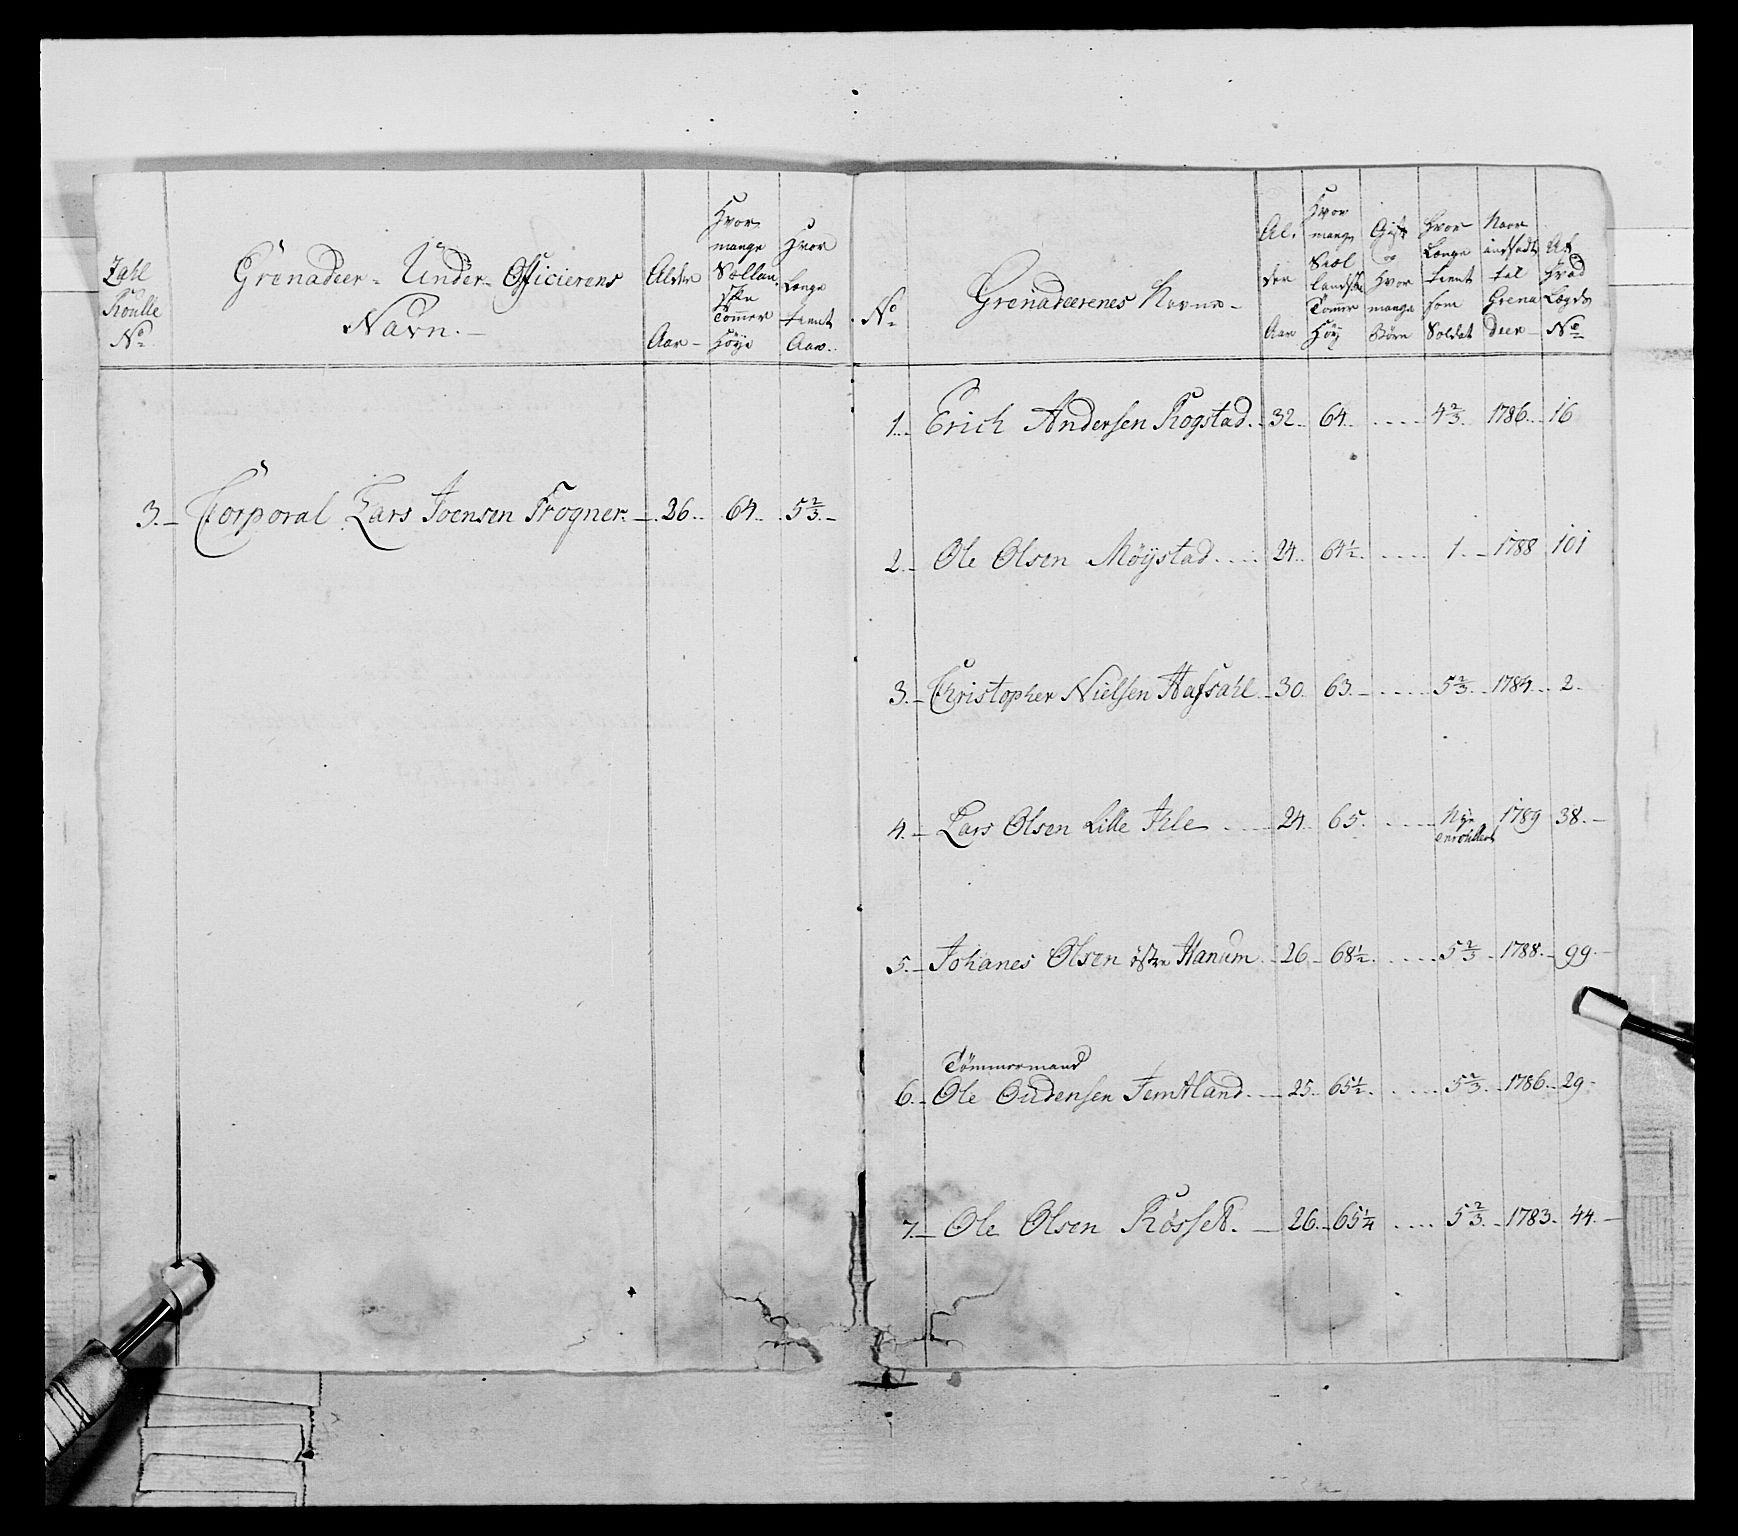 Zahl
Roulle
No
Grenadeer- Under- Officierens
Navn.
Alder
Aar
Hvor
mange
Sællan-
ske
Tommer
Høye
Hvor
Længe
tient
Aar
No
Grenadeerenes Navne
Al-
der
Aar
Hvor
mange
Siæl
landske
Tomer
Høy
Gift
og
Hvor
mange
Børn
Hvor
Længe
tient
som
Soldat
Naar
indsadt
til
Grena
deer
Af
Hvad
Lægds
No
3. Corporal Lars Joensen Frogner. 26. 64. 5 2/3.
1. Erich Andersen Rogstad. 32. 64. 4 2/3. 1786. 16
2. Ole Olsen Møystad. 24. 64 1/2. 1. 1788 101
3. Christopher Nielsen Hafsahl. 30. 63. 5 2/3. 1784. 2.
4. Lars Olsen Lille Jele 24. 65. Nye 1789 38.
enroullert
5. Johanes Olsen østre Hanum. 26. 68 1/2. 5 2/3. 1788. 99.
Tömmermand
6. Ole Oudensen Jemtland. 25. 65 1/2. 5 2/3. 1786. 29.
7. Ole Olsen Røsset. 26. 65 1/4 5 2/3. 1783. 44.